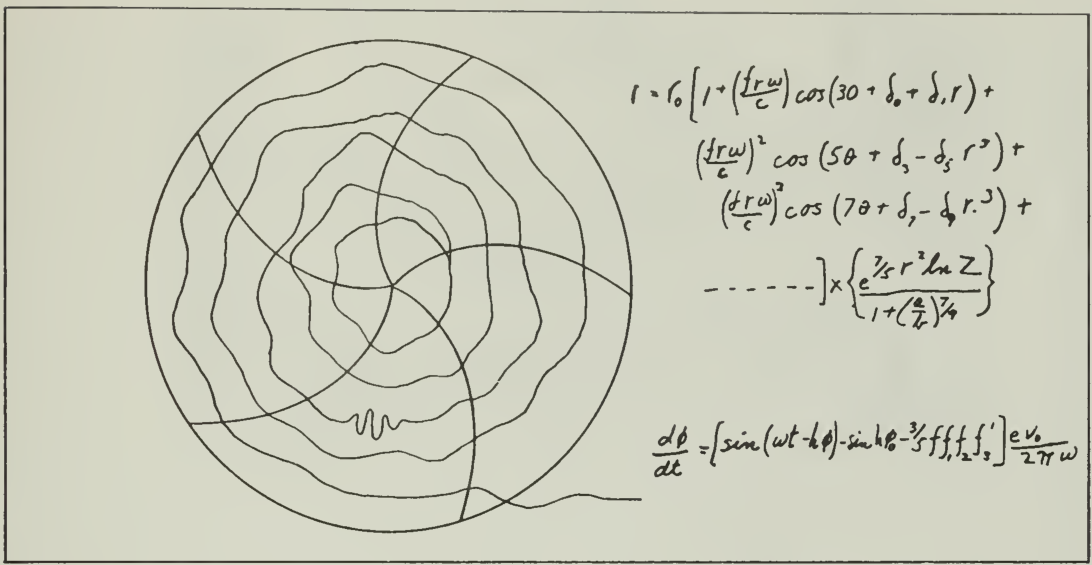 r = r₀ [1 + (frω/c) cos(3θ + δ₀ + δ₁r) +
(frω/c)² cos (5θ + δ₃ - δ₅ r³) +
(frω/c)³ cos (7θ + δ₇ - δ₉ r.³) +
- - - - - - -] x {e^7/5 r² ln Z / 1 + (a/b)^7/9}
dφ/dt = [sin (ωt - hφ) - sin hφ₀ - 3/5 f f₁ f₂ f₃'] e v₀ / 2π ω